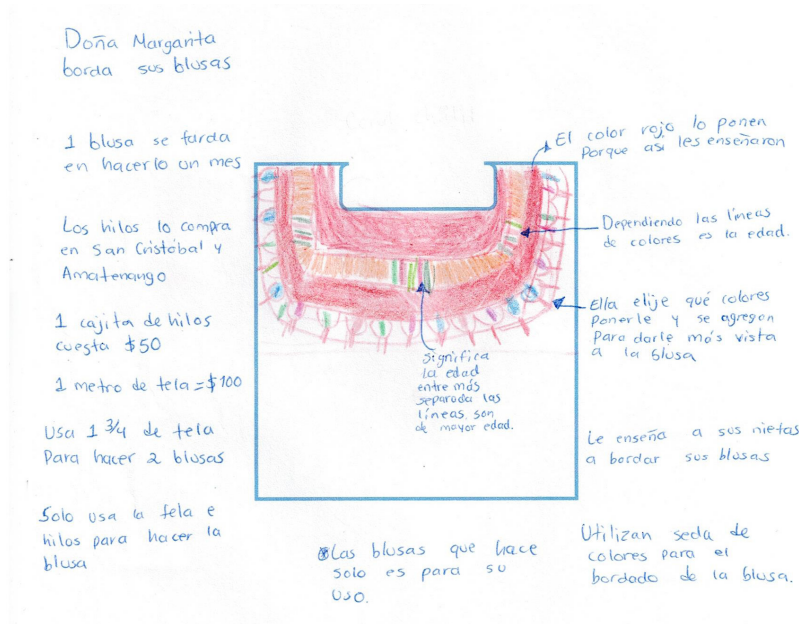 Doña Margarita
borda sus blusas
1 blusa se tarda
en hacerlo un mes
Los hilos lo compra
en San Cristóbal y
Amatenango
1 cajita de hilos
cuesta $50
1 metro de tela = $100
Usa 1 3/4 de tela
Para hacer 2 blusas
Solo usa la tela e
hilos para hacer la
blusa
El color rojo lo ponen
Porque así les enseñaron
Dependiendo las líneas
de colores es la edad.
Ella elije qué colores
Ponerle y se agregan
Para darle más vista
a la blusa
significa
la edad
entre más
separada las
líneas son
de mayor edad.
Le enseña a sus nietas
a bordar sus blusas
Las blusas que hace
solo es para su
uso.
Utilizan seda de
colores para el
bordado de la blusa.